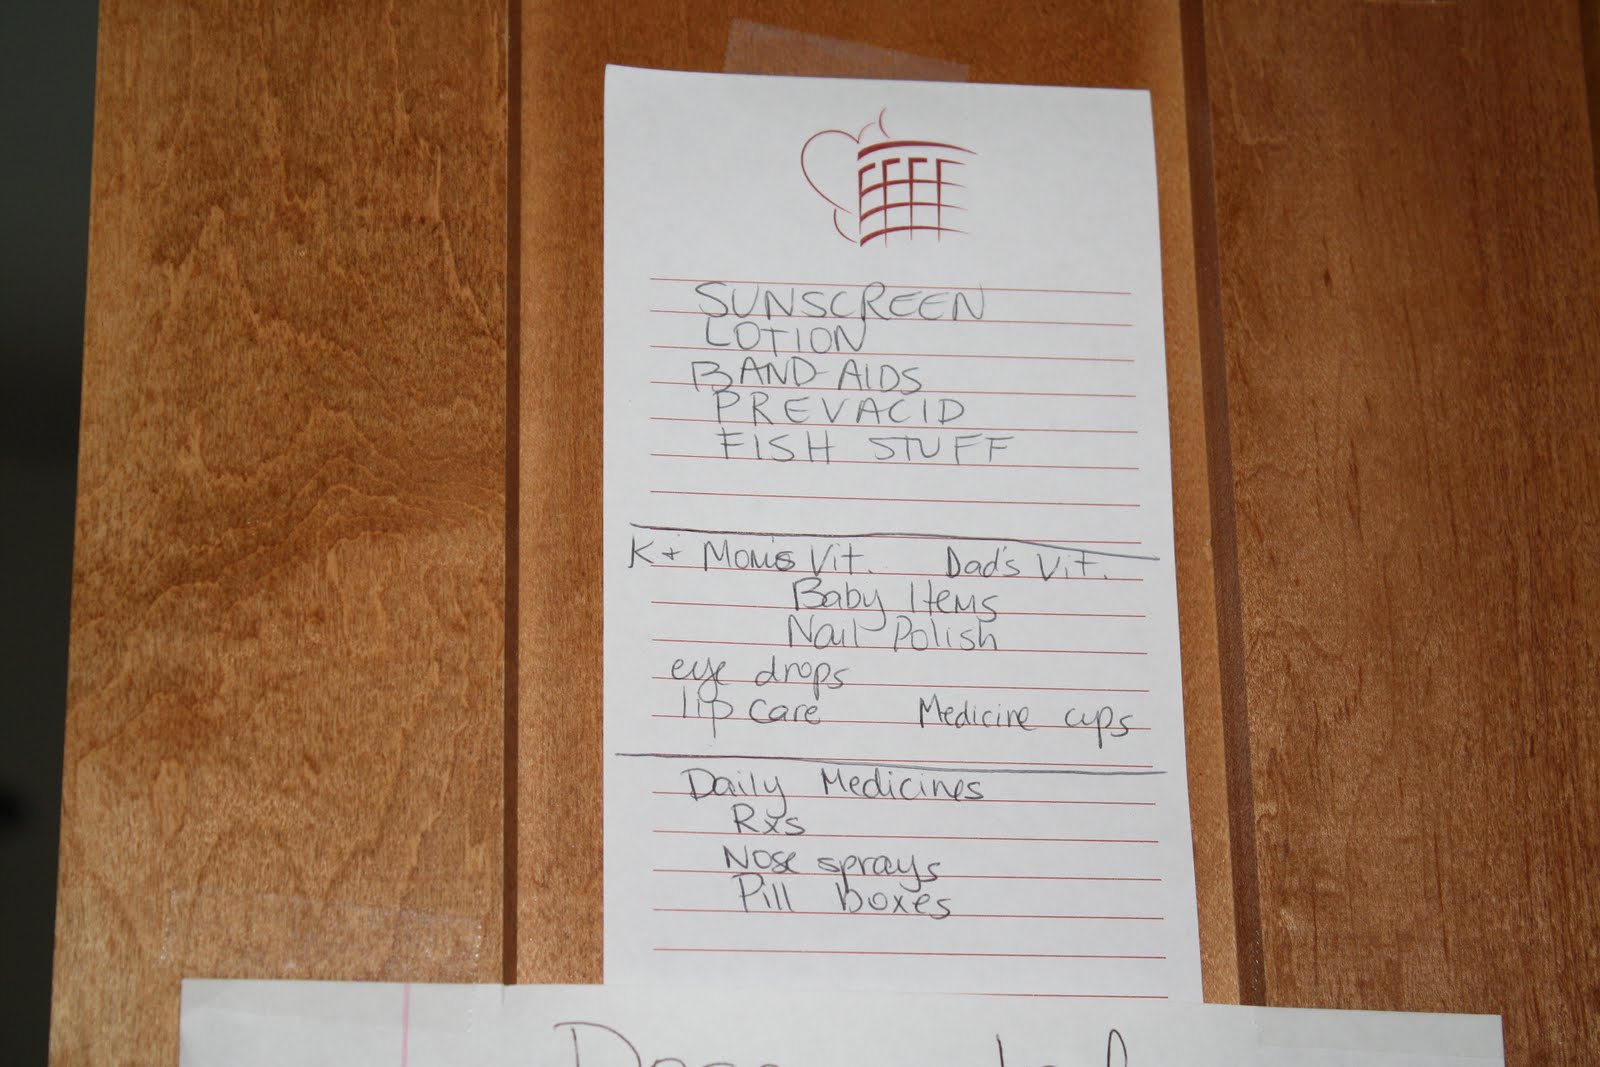 SUNSCREEN
LOTION
BAND-AIDS
PREVACID
FISH STUFF
K + Mom's Vit. Dad's Vit.
Baby Items
Nail Polish
eye drops
lip care Medicine cups
Daily Medicines
Rxs
Nose sprays
Pill boxes